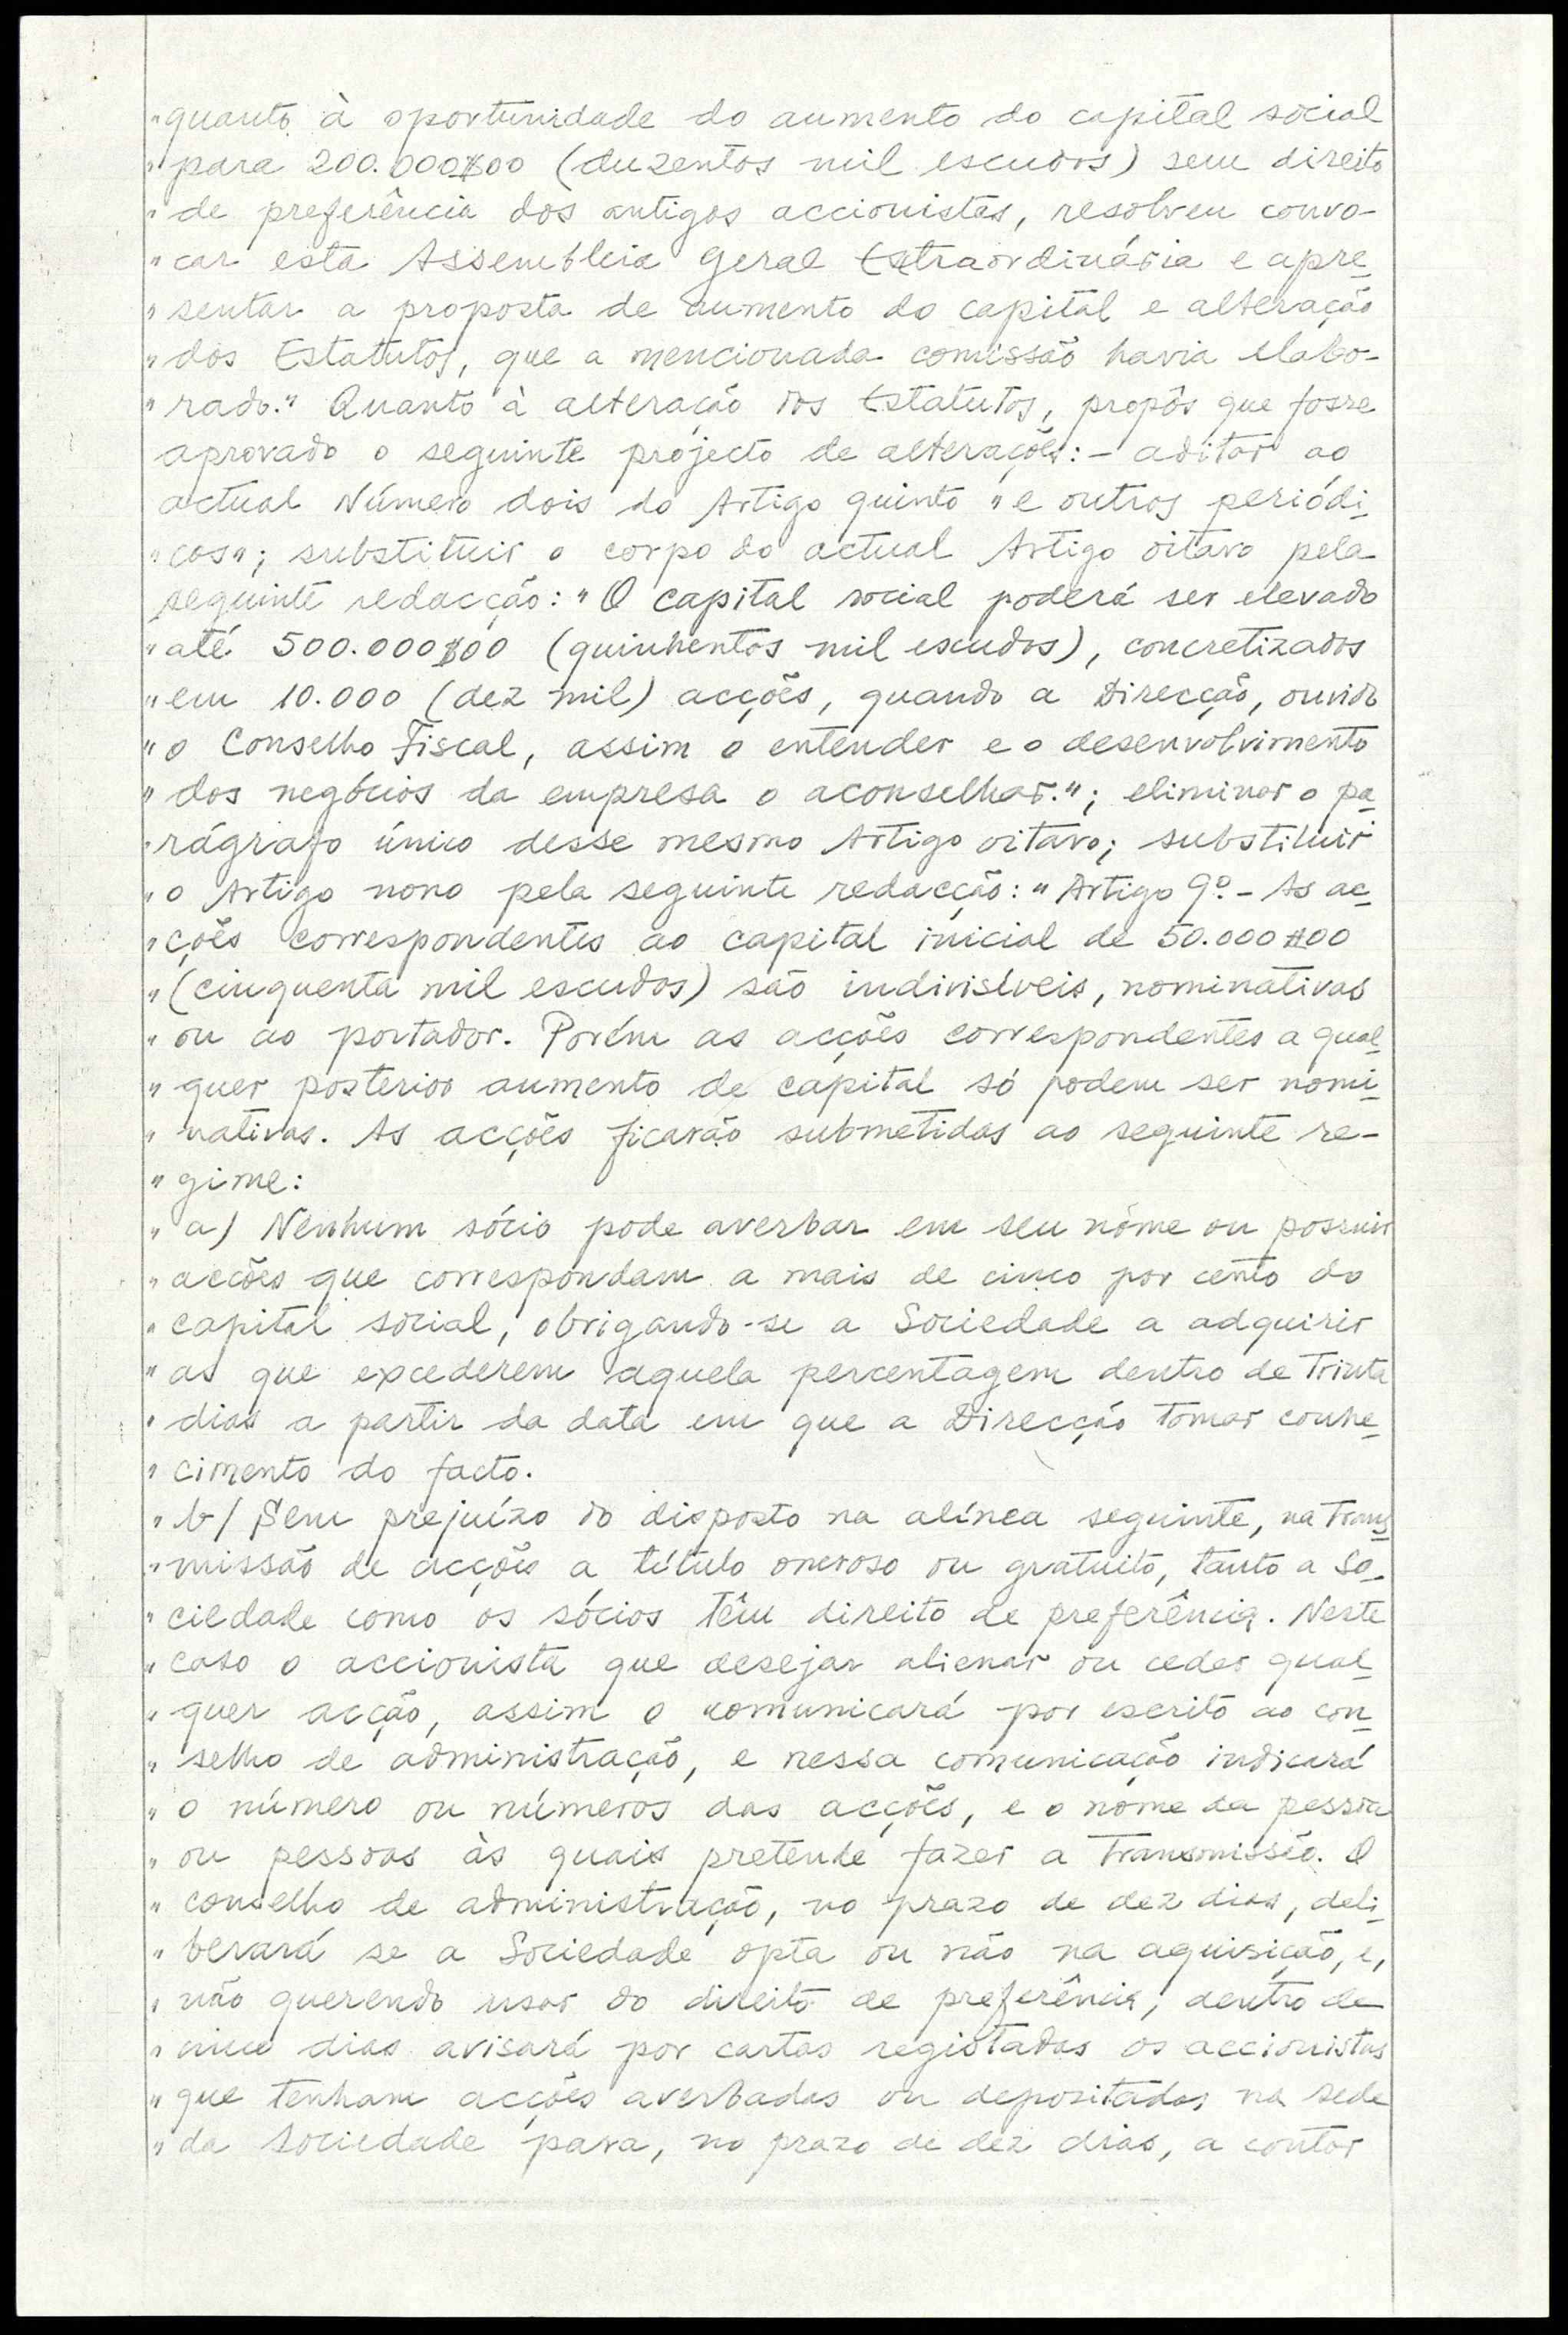 "quanto à oportunidade do aumento do capital social
"para 200.000$00 (duzentos mil escudos) sem direito
"de preferência dos antigos accionistas, resolveu convo-
"car esta Assembleia Geral Extraordinária e apre-
"sentar a proposta de aumento do capital e alteração
"dos Estatutos, que a mencionada comissão havia elabo-
"rado." Quanto à alteração dos Estatutos, propôs que fosse
aprovado o seguinte projecto de alterações:- aditar ao
actual Número dois do Artigo quinto "e outros periódi-
"cos"; substituir o corpo do actual Artigo oitavo pela
seguinte redacção: "O capital social poderá ser elevado
"até 500.000$00 (quinhentos mil escudos), concretizados
"em 10.000 (dez mil) acções, quando a Direcção, ouvido
"o Conselho Fiscal, assim o entender e o desenvolvimento
"dos negócios da empresa o aconselhar."; eliminar o pa-
"rágrafo único desse mesmo Artigo oitavo; substituir
"o Artigo nono pela seguinte redacção: "Artigo 9º - As ac-
"ções correspondentes ao capital inicial de 50.000$00
"(cinquenta mil escudos) são indivisíveis, nominativas
"ou ao portador. Porém as acções correspondentes a qual-
"quer posterior aumento de capital só podem ser nomi-
"nativas. As acções ficarão submetidas ao seguinte re-
"gime:
"a) Nenhum sócio pode averbar em seu nome ou possuir
"acções que correspondam a mais de cinco por cento do
"capital social, obrigando-se a Sociedade a adquirir
"as que excederem aquela percentagem dentro de trinta
"dias a partir da data em que a Direcção tomar conhe-
"cimento do facto.
"b) Sem prejuízo do disposto na alínea seguinte, na trans-
"missão de acções a título oneroso ou gratuito, tanto a So-
"ciedade como os sócios têm direito de preferência. Neste
"caso o accionista que desejar alienar ou ceder qual-
"quer acção, assim o comunicará por escrito ao con-
"selho de administração, e nessa comunicação indicará
"o número ou números das acções, e o nome da pessoa
"ou pessoas às quais pretende fazer a transmissão. O
"conselho de administração, no prazo de dez dias, deli-
"berará se a Sociedade opta ou não na aquisição, e,
"não querendo usar do direito de preferência, dentro de
"cinco dias avisará por cartas registadas os accionistas
"que tenham acções averbadas ou depositadas na sede
"da Sociedade para, no prazo de dez dias, a contar